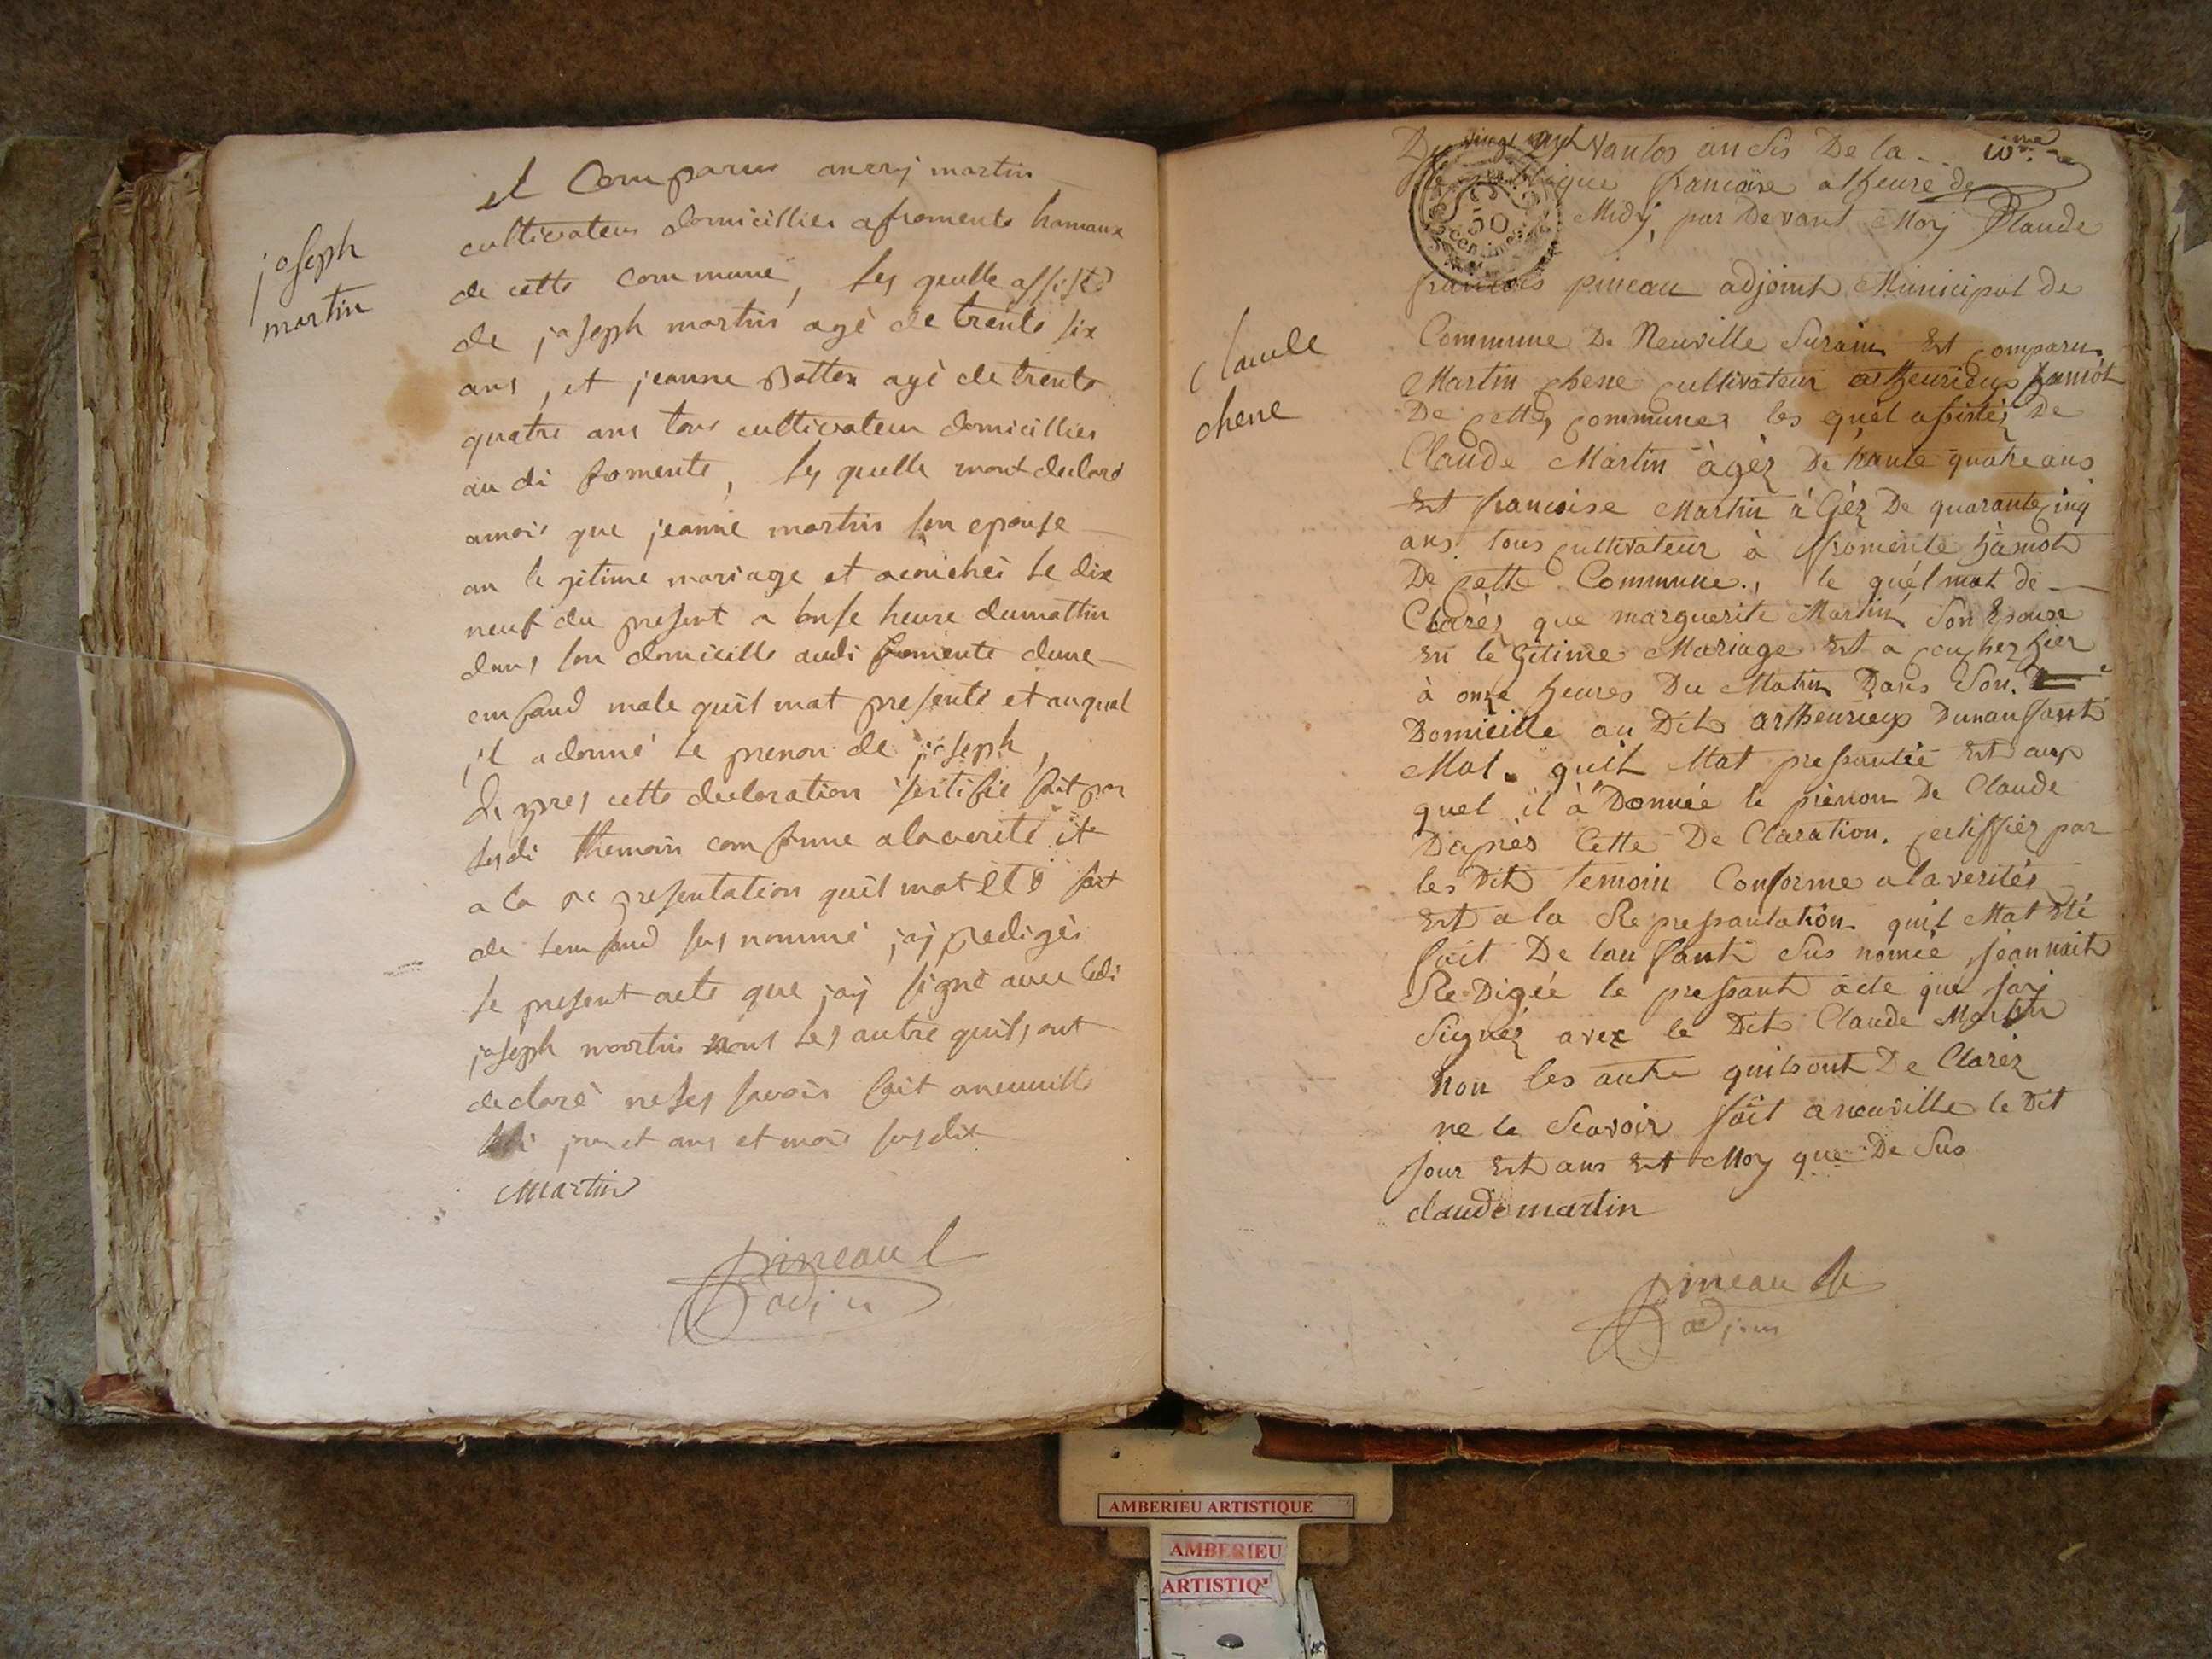 joseph
martin
et Comparus anrry martin
cultivateur domicillier a fromente hamaux
de cette commune, les quelle assisté
de joseph martin agè de trente six
ans, et jeanne agè de trente
quatre ans tous cultivateur domicillier
au di fromente, les quelle mont declaré
a moi que jeanne martin son epouse
an le gitime mariage et acouchéi le dix
neuf du present a onse heure du mattin
dans son domicille audi fromente dune
emfand male quil mat presenté et auquel
jl a donné le prenon de joseph,
da pres cette decleration sertifié par
les di themoin comforme a la verite et
a la re presentation quil mat eté fait
de lemfand sus nommé jaj redigéi
le present acte que jaj signé avec ledi
joseph martin nons les autre quils ont
declaré neles savoir fait a neuville
jour et ans et mois susdit
Martin
pineau
adjoint
claude
chene
10me
Du vingt Vantos an sis De la
française a lheure de
Midy, par Devant Moy Claude
francois pineau adjoint Municipal de
Commune De Neuville Surain Est comparu
Martin chene cultivateur hamot
De cette commune, les quel asisté, De
Claude Martin àgéz De trante quatre ans
Est francoise Martin à Géz De quarante cinq
ans tous cultivateur à fromente hamot
De cette Commune., le quél mat de
Clarés, que marguerite Martin Son Epouse
En le Gitime Mariage Est a coucher hier
à onze heures Du Matin Dans Son
Domicille au Dit Dunansant
Mal. quil Mat pressantée Est aux
quel il à Donnée le prénon De Claude
Daprés Cette De Claration. certiffiéz par
les Dit temoin Conforme a la veritéz
Est a la Re pressantation quil Mat Eté
fait De lan fant Sus nomée,
Re Digée le pressant acte que jaj
Signéz avec le Dit Claude Martin
Non les autre quils ont De Claréz
ne le Scavoir fait a neuville le Dit
jour Est ans Est Moy que De Sus
claude martin
pineau
adjoint
50
centimes
AMBERIEU ARTISTIQUE
AMBERIEU
ARTISTIQ